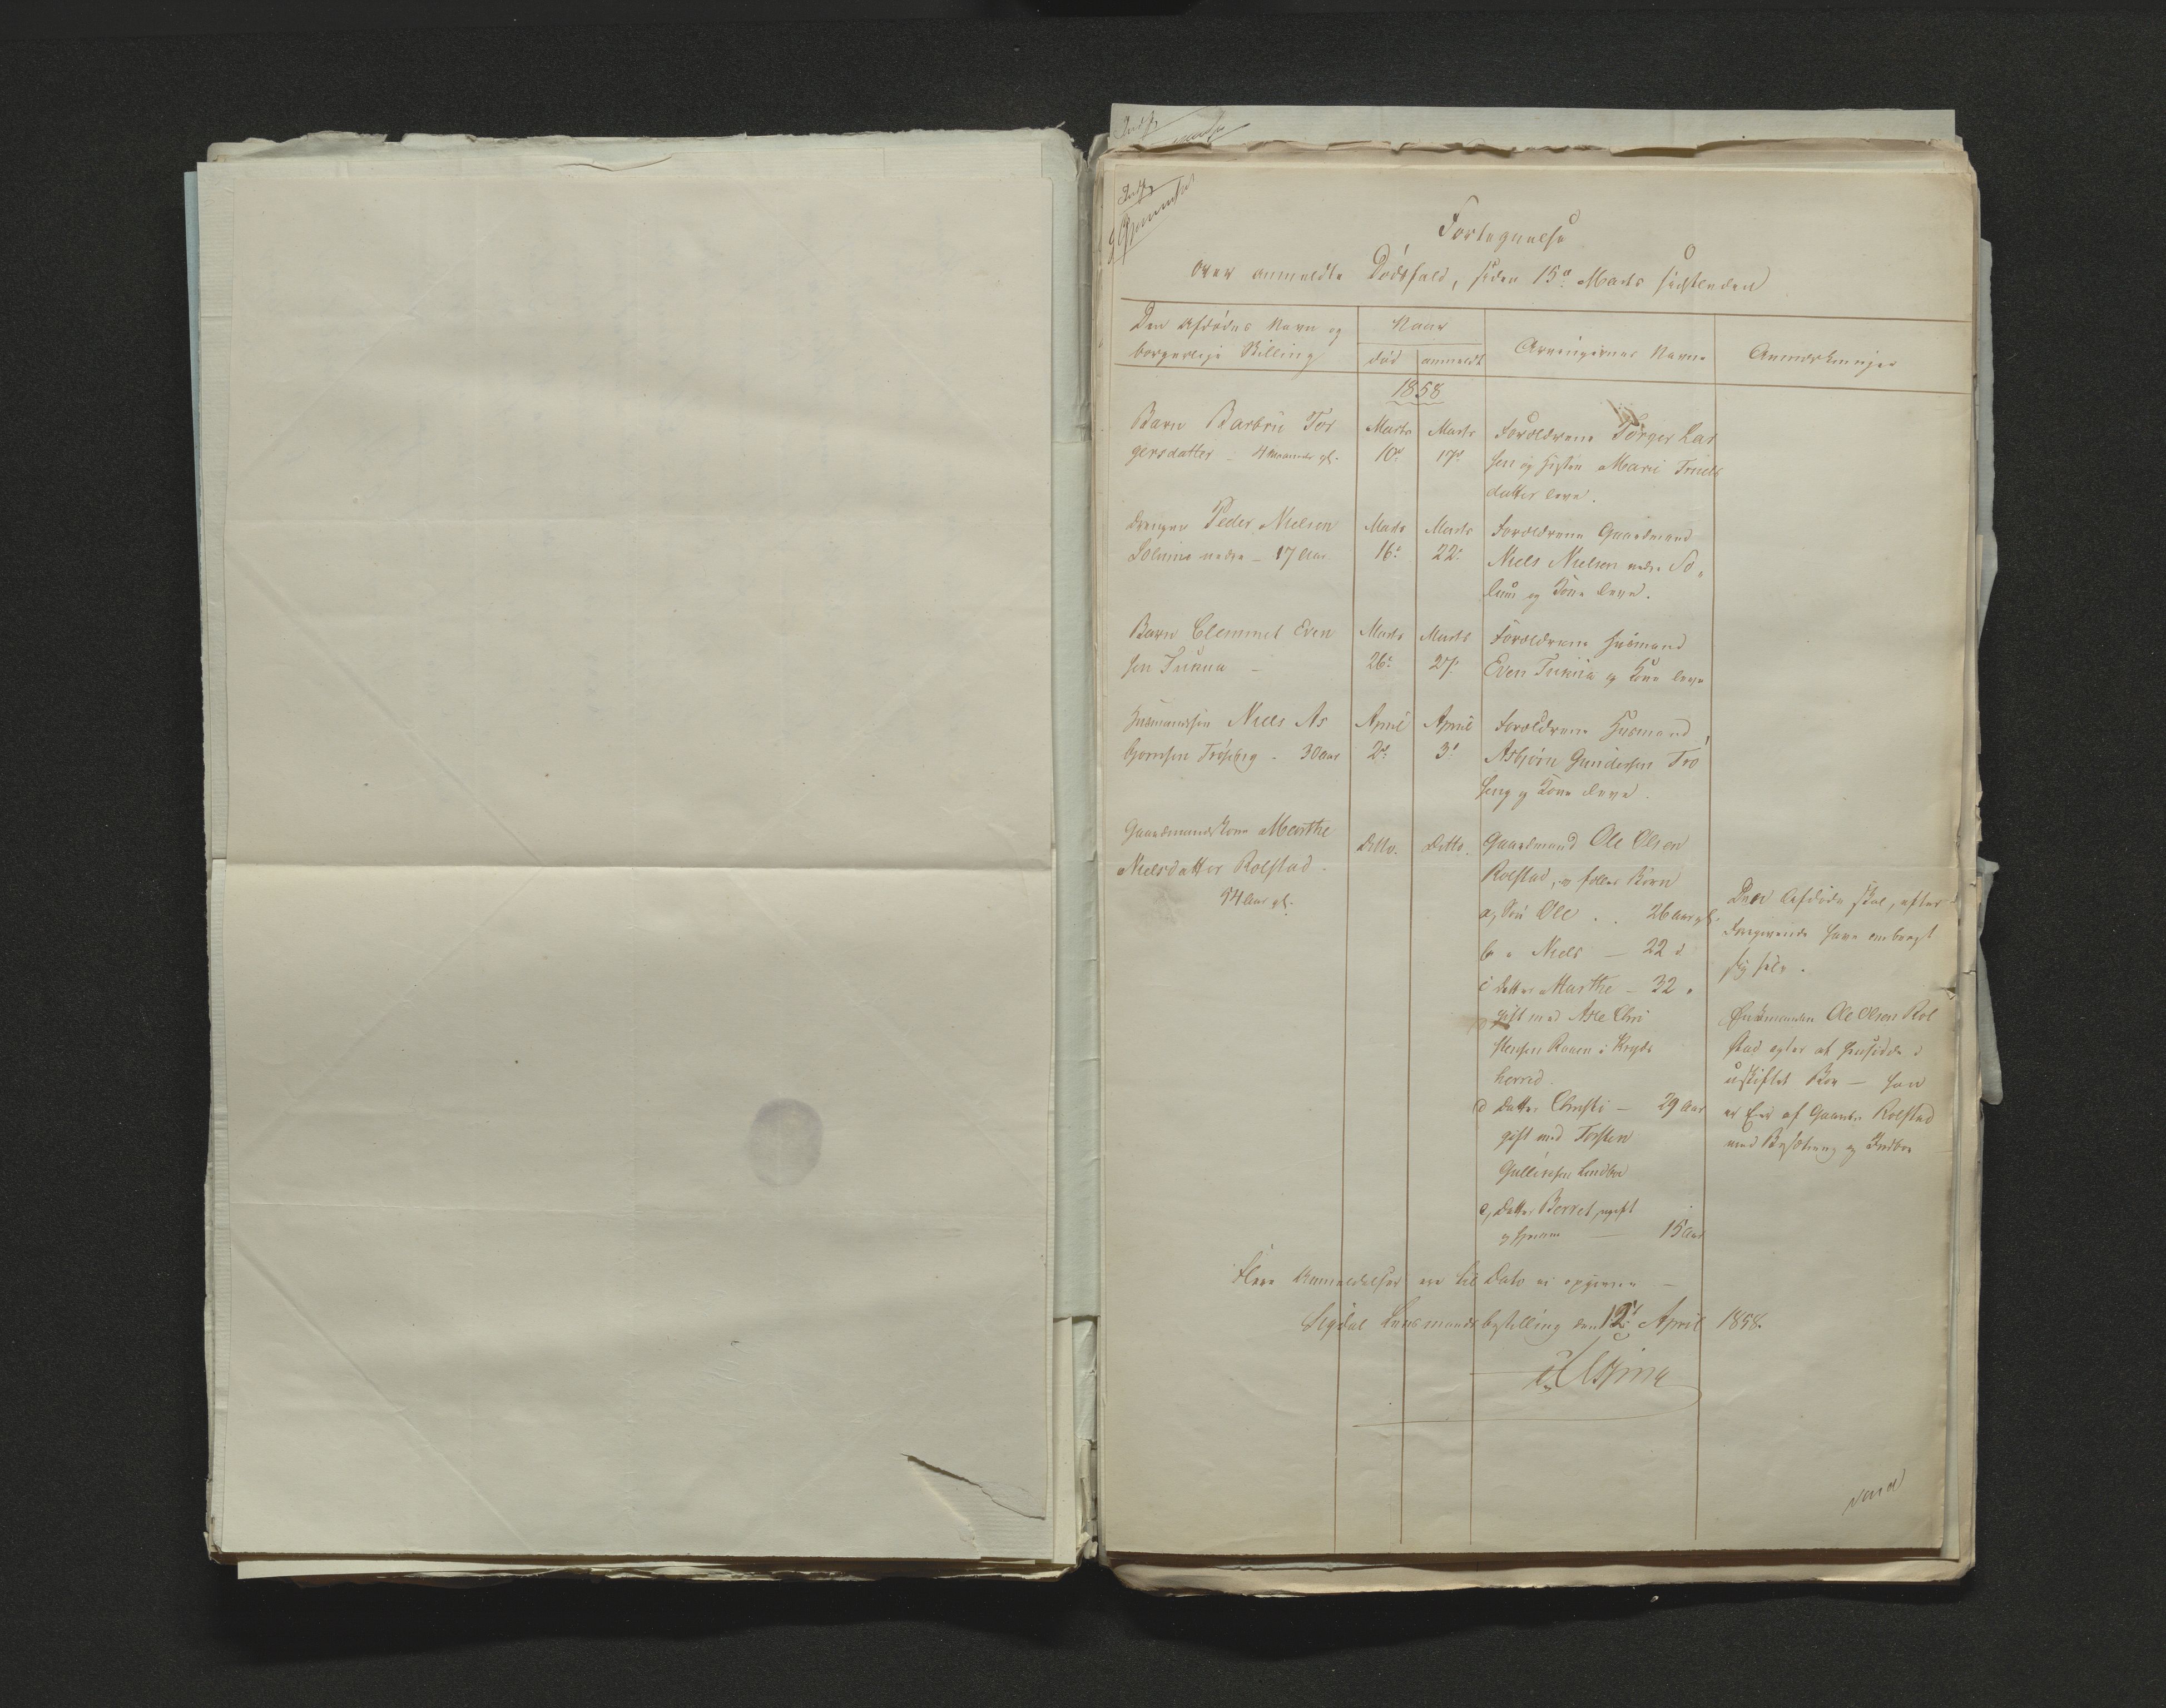 Fortegnelse
over anmeldte Dødsfald, siden 15de Marts sidstleden
Den Afdødes Navn og
borgerlige Stilling
Naar
død
anmeldt
Arvingernes Navne
Anmærkninger
1858
Barn Barbru Tor
gersdatter – 4 maaneder gl.
Marts
10de
Marts
17de
Forældrene Torger Lar
sen og Marie Truels
datter leve.
Drengen Peder Nielsen
Solum nedre – 17 Aar
Marts
16de
Marts
22de
Forældrene Gaardmand
Niels Nielsen nedre So„
lum og Kone leve.
Barn Clemmet Even
sen –
Marts
26de
Marts
27de
Forældrene Husmand
Even og Kone leve
Husmandssøn Niels As
bjørnsen – 30 Aar
April
2den
April
3die
Forældrene Husmand
Asbjørn Gundersen
og Kone leve.
Gaardmandskone Marthe
Nielsdatter Rolstad.
54 Aar gl.
Ditto.
Ditto.
Gaardmand Ole Olsen
Rolstad, og fælles Børn
a, Søn Ole . . 26 Aar gl.
b „ Niels – 22 „
c Datter Marthe – 32 „
gift med Asle Chri
stensen Raaen i Kryds
herred.
d Datter Christi – 29 Aar
gift med Torsten
Gulliksen Lindbo
e, Datter Berret, ugift
og hjemme — 15 Aar
Den Afdøde skal, efter
Foregivende have ombragt
sig selv.
Enkemanden Ole Olsen Rol
stad agter at hensidde i
uskiftet Boe – han
er Eier af Gaarden Rolstad
med Besætning og Indboe
Flere Anmeldelser ere til Dato ei opgivne —
Sigdal Lensmandsbestilling den 12te April 1858.
vend